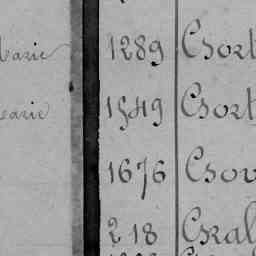 Marie 1289 Csort
Marie 1549 Csort
1676 Csov
218 Cral